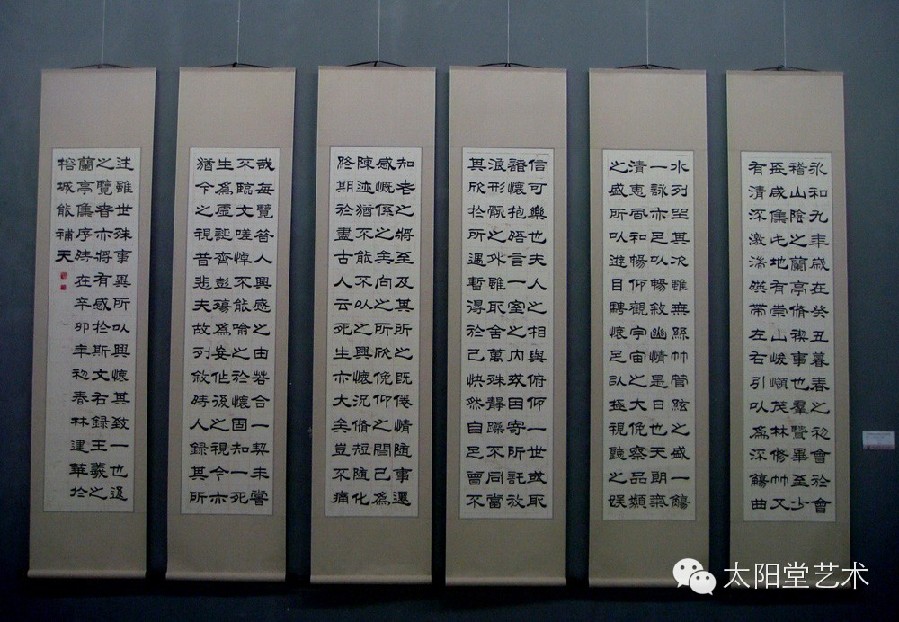 永和九年歲在癸丑暮春之初會於會
稽山陰之蘭亭脩禊事也羣賢畢至少
長咸集此地有崇山峻嶺茂林脩竹又
有清流激湍映帶左右引以為流觴曲
水列坐其次雖無絲竹管絃之盛一觴
一詠亦足以暢敘幽情是日也天朗氣
清惠風和暢仰觀宇宙之大俛察品類
之盛所以遊目騁懷足以極視聽之娛
信可樂也夫人之相與俯仰一世或取
諸懷抱悟言一室之內或因寄所託放
浪形骸之外雖取舍萬殊靜躁不同當
其欣於所遇暫得於己快然自足曾不
知老之將至及其所之既倦情隨事遷
感慨係之矣向之所欣俛仰之間已為
陳迹猶不能不以之興懷況脩短隨化
終期於盡古人云死生亦大矣豈不痛
哉每覽昔人興感之由若合一契未嘗
不臨文嗟悼不能喻之於懷固知一死
生為虛誕齊彭殤為妄作後之視今亦
猶今之視昔悲夫故列敘時人錄其所
述雖世殊事異所以興懷其致一也後
之覽者亦將有感於斯文右錄王羲之
蘭亭集序在辛卯年初春林運華於
榕城能補天
太阳堂艺术